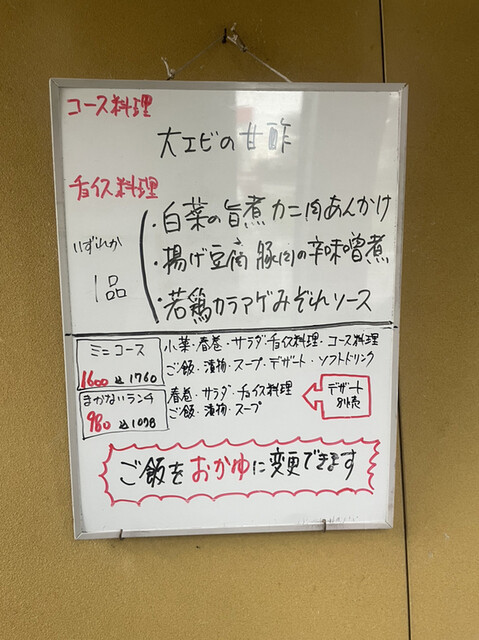 コース料理
大エビの甘酢
チョイス料理
いずれか
1品
・白菜の旨煮カニ肉あんかけ
・揚げ豆腐 豚肉の辛味噌煮
・若鶏カラアゲみぞれソース
ミニコース
1600 込1760
小菜・春巻・サラダ・チョイス料理・コース料理
ご飯・漬物・スープ・デザート・ソフトドリンク
まかないランチ
980 込1078
春巻・サラダ・チョイス料理
ご飯・漬物・スープ
デザート
別売
ご飯をおかゆに変更できます